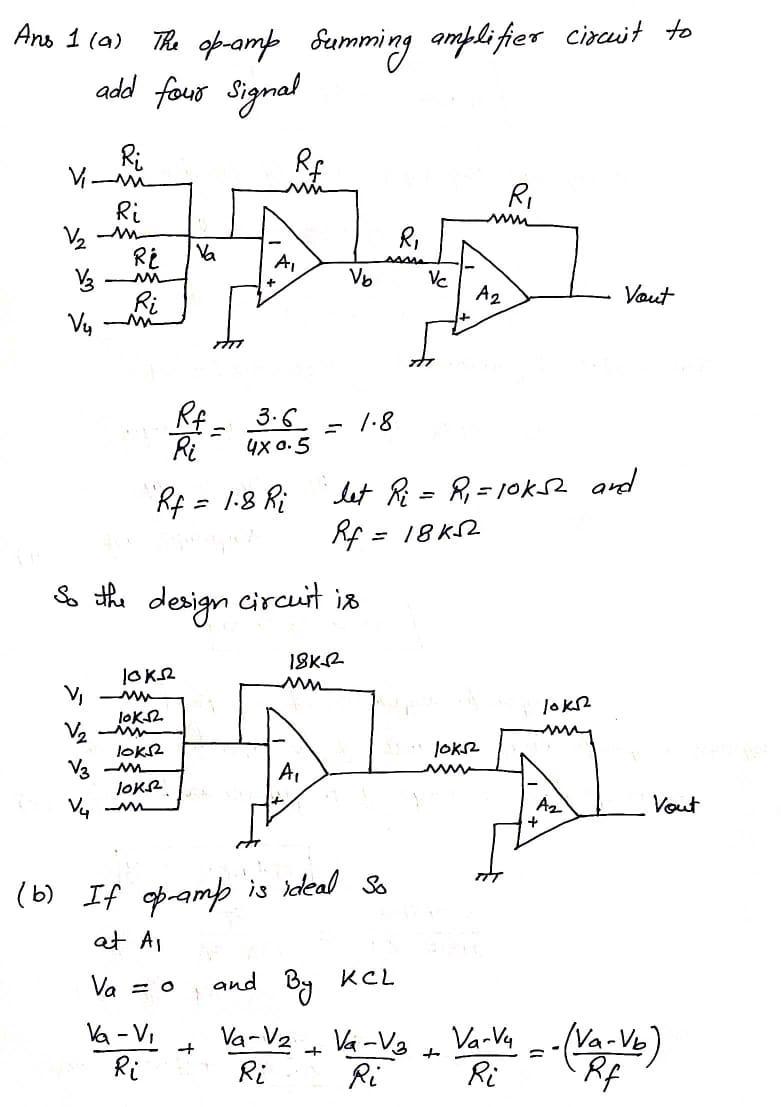 Ans 1 (a) The op-amp Summing amplifier circuit to
add four Signal
Ri
Rf
V1
R1
Ri
V2
R1
Ri
Va
A1
V3
Vb
Vc
Ri
A2
Vout
V4
- +
- +
Rf/Ri = 3.6/4X0.5 = 1.8
Rf = 1.8 Ri let Ri = R1 = 10KΩ and
Rf = 18KΩ
So the design circuit is
18KΩ
10KΩ
V1
10KΩ
10KΩ
V2
10KΩ
10KΩ
V3
A1
10KΩ
V4
A2
Vout
- +
- +
(b) If op-amp is ideal So
at A1
Va = 0, and By KCL
(Va-V1)/Ri + (Va-V2)/Ri + (Va-V3)/Ri + (Va-V4)/Ri = -(Va-Vb)/Rf